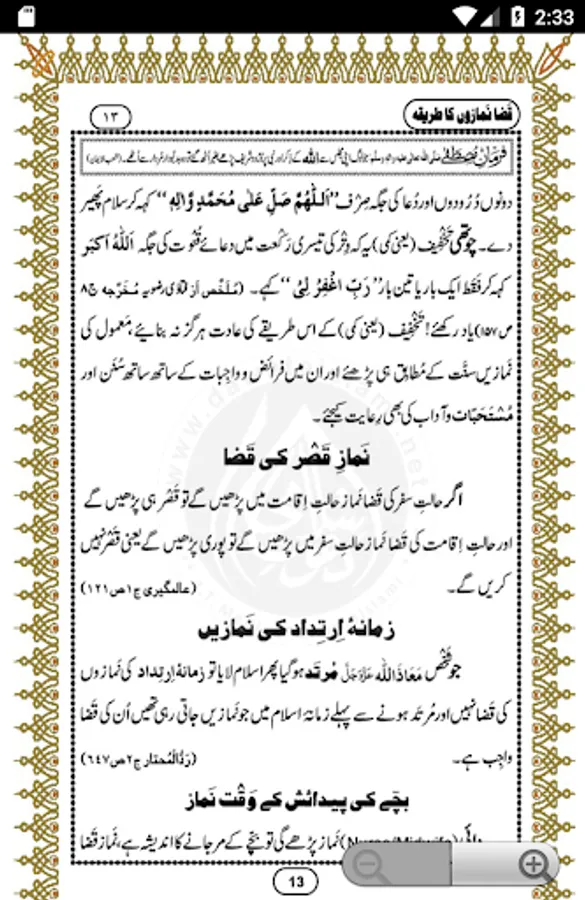 2:33
قضا نمازوں کا طریقہ
۱۳
فرمانِ مصطفٰے صلی اللہ تعالٰی علیہ واٰلہ وسلم
دونوں دُرُودوں اور دُعا کی جگہ صِرف ”اَللّٰھُمَّ صَلِّ عَلٰی مُحَمَّدٍ وَّاٰلِہٖ“ کہہ کر سلام پھیر
دے۔ چوتھی تخفیف (یعنی کمی) یہ کہ وِتْر کی تیسری رَکْعت میں دعائے قُنوت کی جگہ اَللّٰہُ اَکْبَر
کہہ کر فَقَط ایک بار یا تین بار ”رَبِّ اغْفِرْ لِیْ“ کہے۔ (مُلَخَّص اَز فتاوٰی رضویہ مُخَرَّجہ ج۸
ص۱۵۷) یاد رکھئے! تَخْفِیف (یعنی کمی) کے اس طریقے کی عادت ہرگز نہ بنائیے، مَعمول کی
نَمازیں سنّت کے مُطابِق ہی پڑھئے اور ان میں فرائض و واجِبات کے ساتھ ساتھ سُنَن اور
مُسْتَحَبّات و آداب کی بھی رِعایت کیجئے۔
نَمازِ قَصْر کی قَضا
اگر حالتِ سفر کی قَضا نَماز حالتِ اِقامت میں پڑھیں گے تو قَصْر ہی پڑھیں گے
اور حالتِ اِقامت کی قَضا نَماز حالتِ سفر میں پڑھیں گے تو پوری پڑھیں گے یعنی قَصْر نہیں
کریں گے۔ (عالمگیری ج۱ ص۱۲۱)
زمانۂ اِرتِداد کی نَمازیں
جو شخص مَعَاذَ اللہ عَزَّوَجَلَّ مُرتَد ہو گیا پھر اسلام لایا تو زمانۂ اِرتِداد کی نَمازوں
کی قَضا نہیں اور مُرتَد ہونے سے پہلے زمانۂ اسلام میں جو نَمازیں جاتی رہی تھیں اُن کی قَضا
واجِب ہے۔ (رَدُّالْمُحتار ج۲ ص۶۴۷)
بچّے کی پیدائش کے وَقْت نَماز
دائی (Nurse/Midwife) نَماز پڑھے گی تو بچّے کے مرجانے کا اندیشہ ہے، نَماز قَضا
13